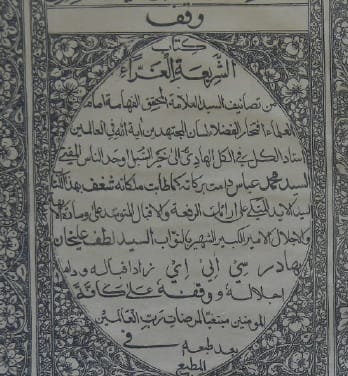 وقف
كتاب
الشريعة الغراء
من تصانيف السيد العلامة المحقق الفهامة امام
العلماء افتخار الفضلاء لسان المجتهدين آية الله في العالمين
استاد الكل في الكل الهادي الى خير السبل اوحد الناس المفتي
السيد محمد عباس دامت بركاته كما طابت ملكاته شغف بهذا
السيد الايد على الرفعة والاقبال
والاجلال الامير الكبير الشهير بالنواب السيد لطف عليخان
بهادر سي أي اي زاد اقباله ودام
اجلاله ووقفه على كافة
المؤمنين مبتغيا لمرضات رب العالمين
بعد طبعه في
المطبع